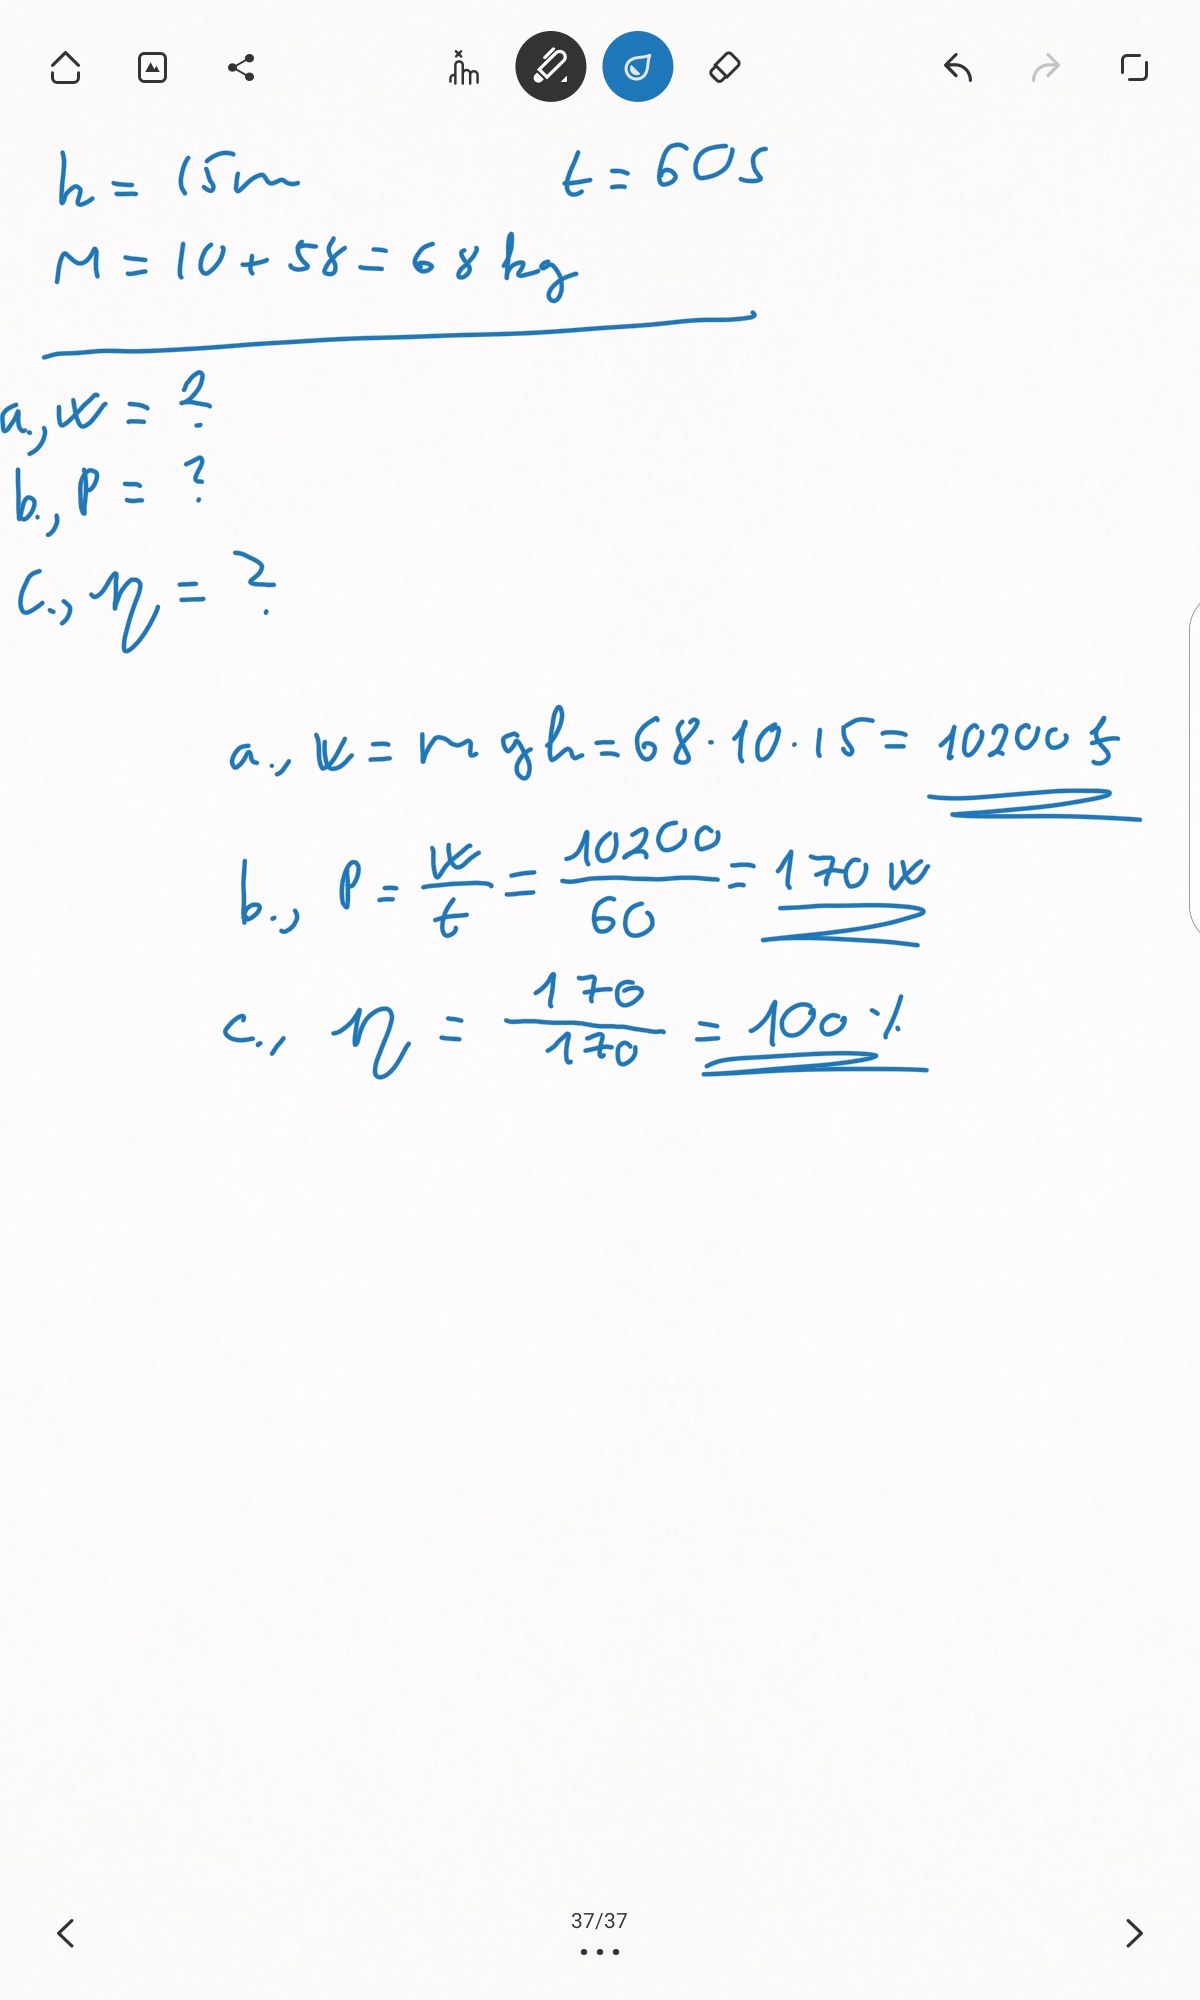 h = 15m t = 60s
M = 10 + 58 = 68 kg
a., W = ?
b., P = ?
c., η = ?
a., W = m g h = 68 · 10 · 15 = 10200 J
b., P = W/t = 10200/60 = 170 W
c., η = 170/170 = 100 %
37/37